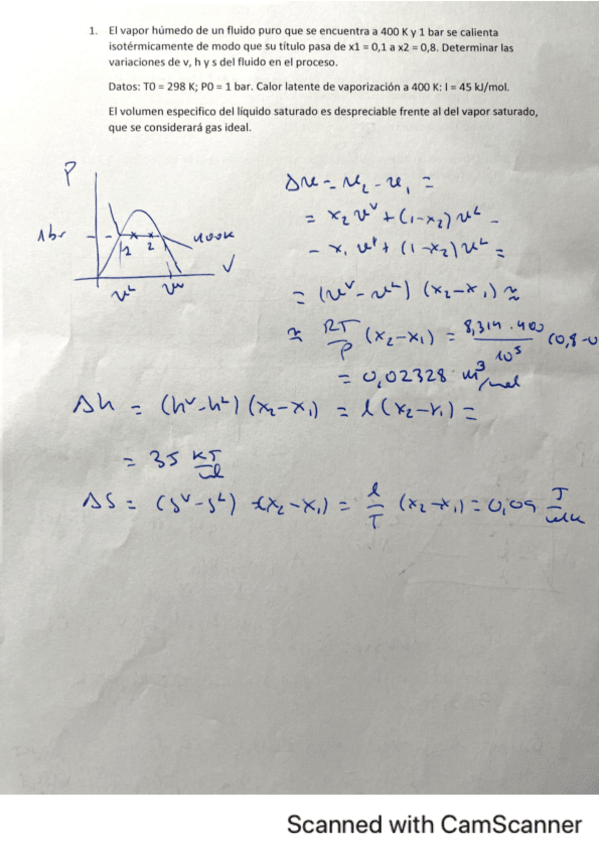 1. El vapor húmedo de un fluido puro que se encuentra a 400 K y 1 bar se calienta
isotérmicamente de modo que su título pasa de x1 = 0,1 a x2 = 0,8. Determinar las
variaciones de v, h y s del fluido en el proceso.
Datos: T0 = 298 K; P0 = 1 bar. Calor latente de vaporización a 400 K: l = 45 kJ/mol.
El volumen especifico del líquido saturado es despreciable frente al del vapor saturado,
que se considerará gas ideal.
P
1 br
1 2
400K
V
v^L v^V
Δv = v₂ - v₁ =
= x₂ v^V + (1-x₂) v^L -
- x₁ v^V + (1-x₂) v^L =
= (v^V - v^L) (x₂ - x₁) ≈
≈ RT/P (x₂ - x₁) = 8,314 · 400 / 10⁵ (0,8-0
= 0,02328 m³/mol
Δh = (h^V - h^L) (x₂ - x₁) = l (x₂ - x₁) =
= 35 KJ/mol
ΔS = (s^V - s^L) (x₂ - x₁) = l/T (x₂ - x₁) = 0,09 J/molK
Scanned with CamScanner